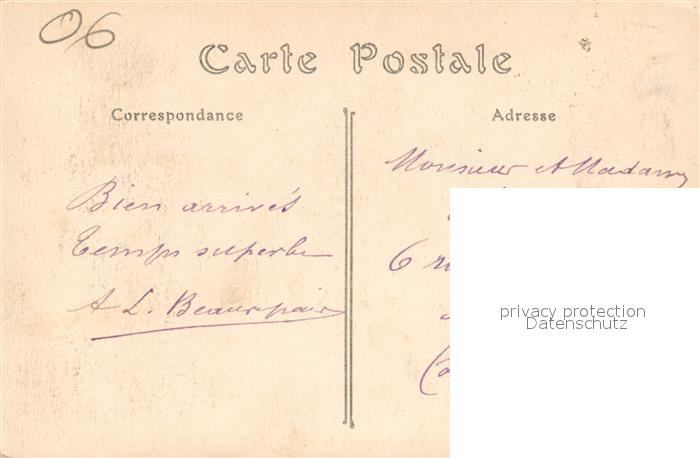 06
Carte Postale
Correspondance
Adresse
Bien arrivés
Temps superbe
A L. Beaurepaire
Monsieur et Madame
6
privacy protection
Datenschutz